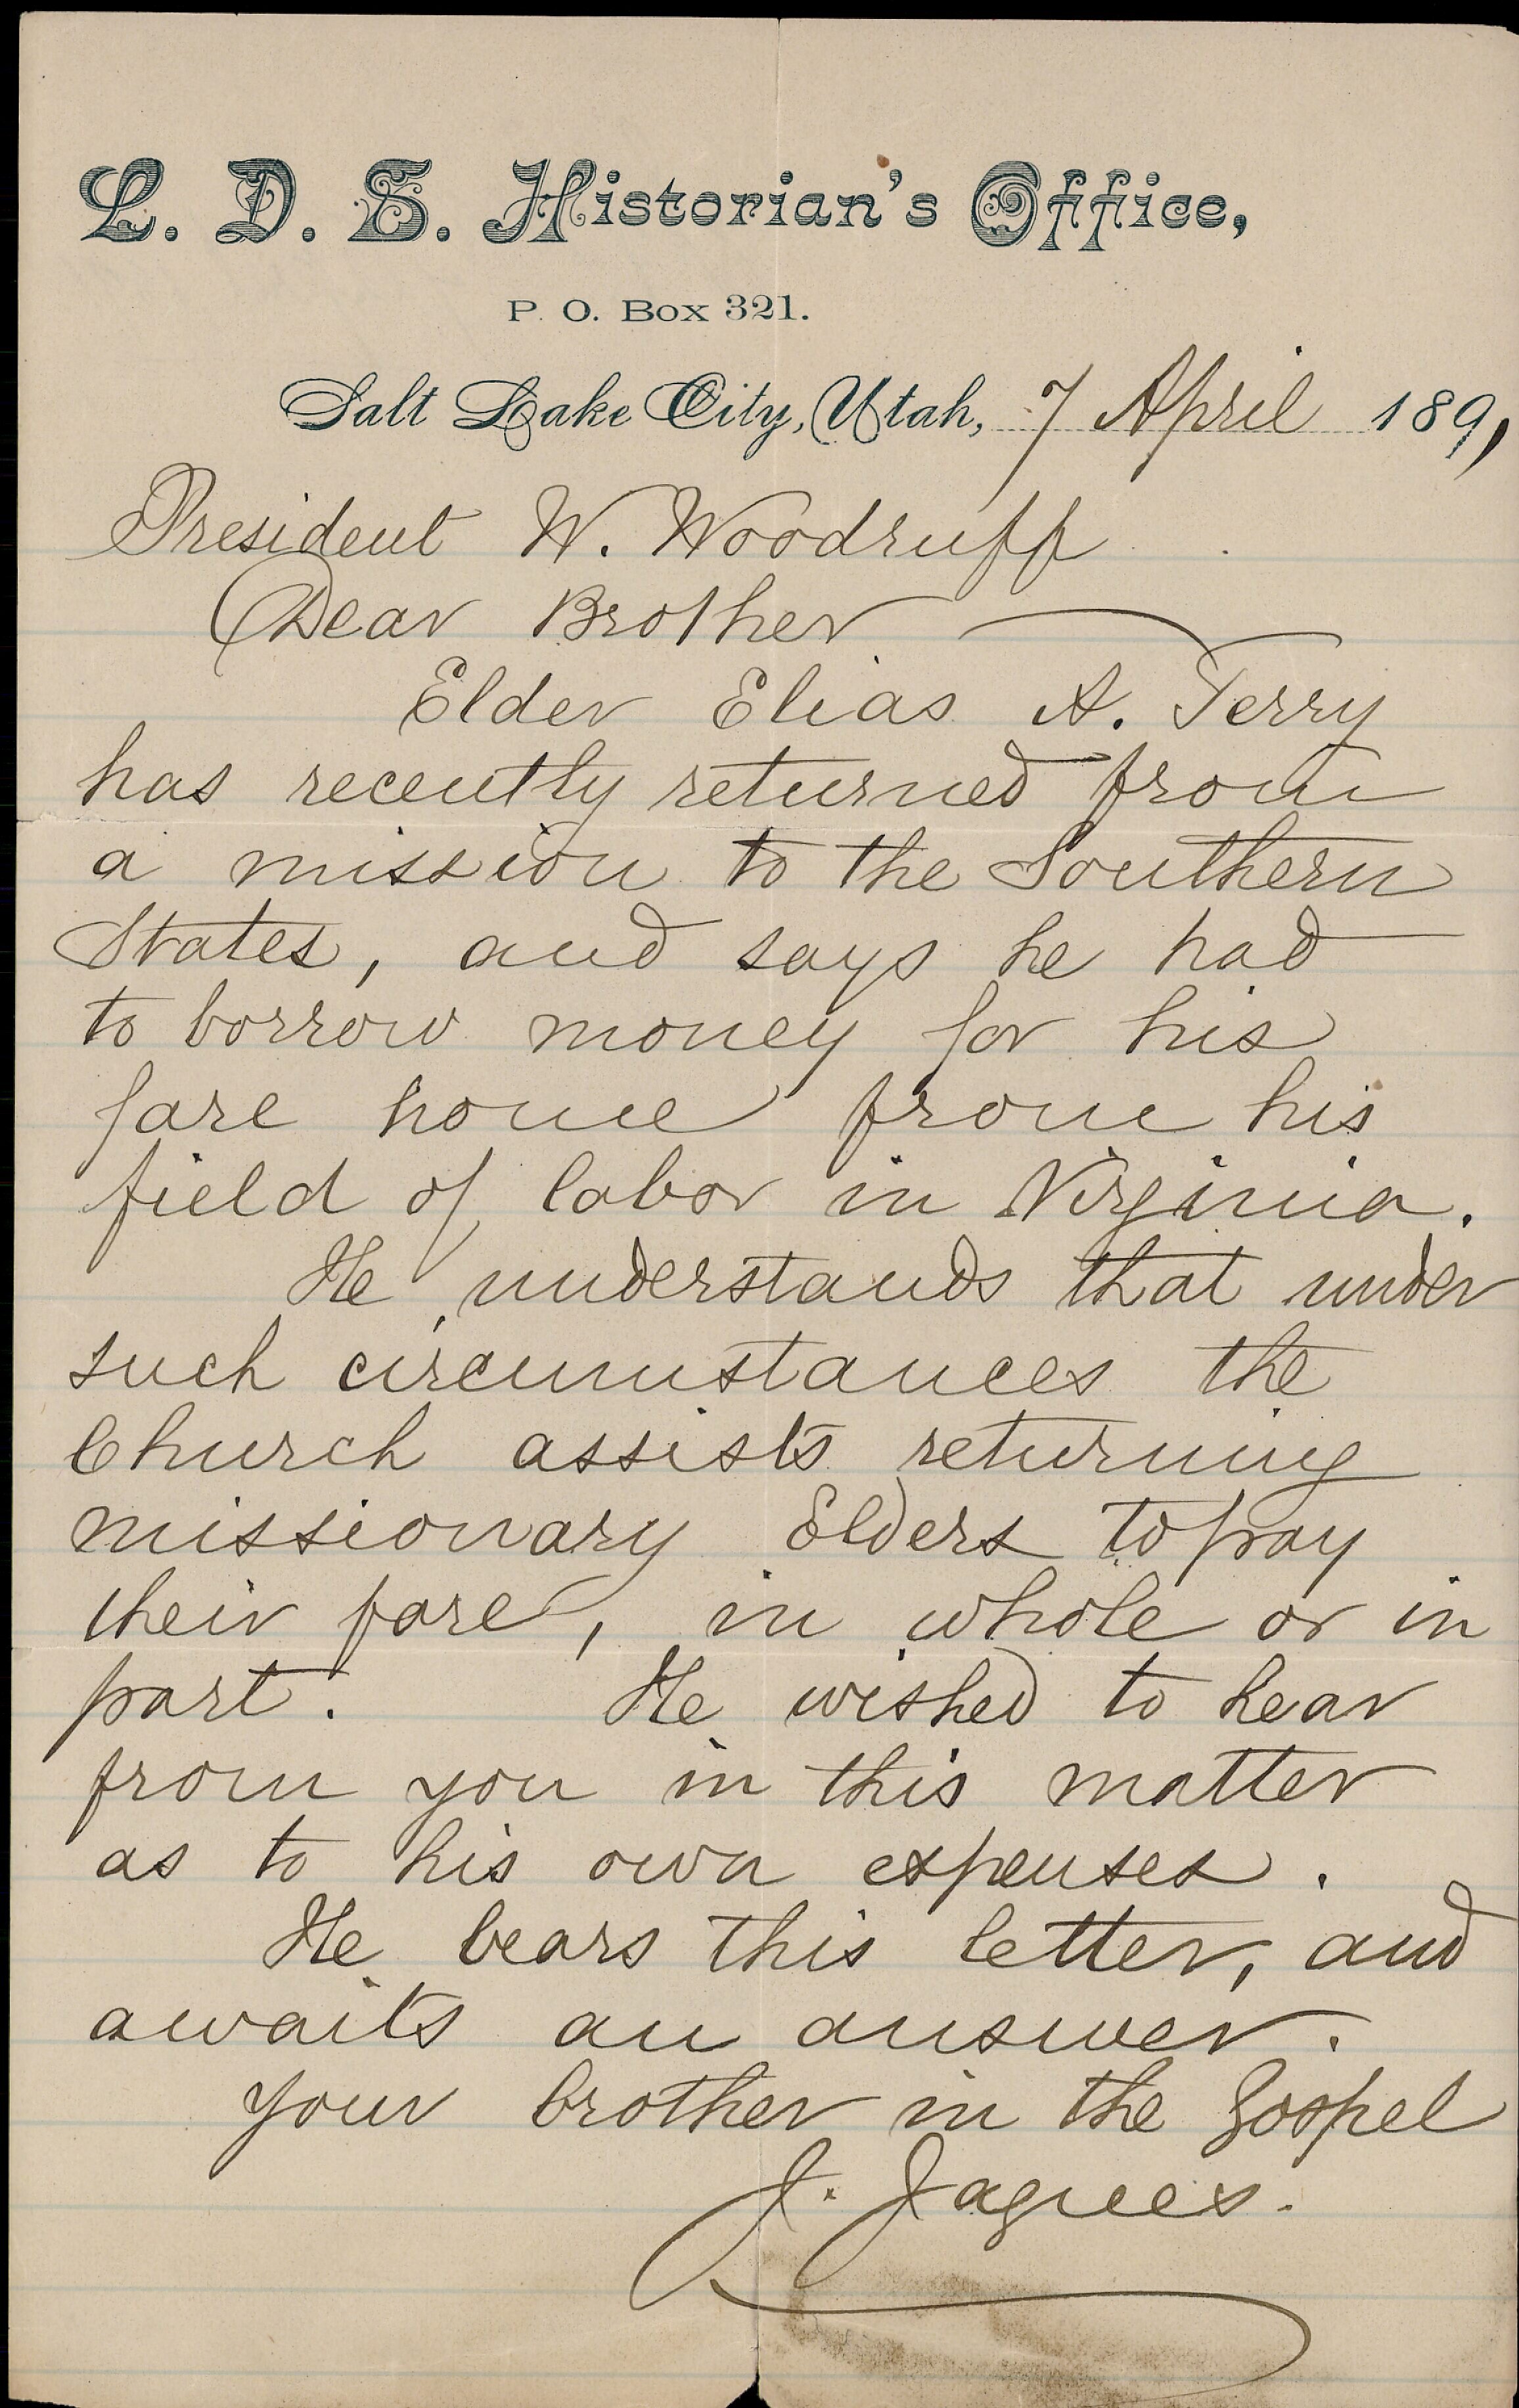 L. D. S. Historian's Office,
P. O. Box 321.
Salt Lake City, Utah, 7 April 1891
President W. Woodruff
Dear Brother
Elder Elias A. Terry
has recently returned from
a mission to the Southern
States, and says he had
to borrow money for his
fare home from his
field of labor in Virginia.
He understands that under
such circumstances the
Church assists returning
missionary Elders to pay
their fare, in whole or in
part. He wished to hear
from you in this matter
as to his own expenses.
He bears this letter, and
awaits an answer.
Your brother in the Gospel
J. Jaques.